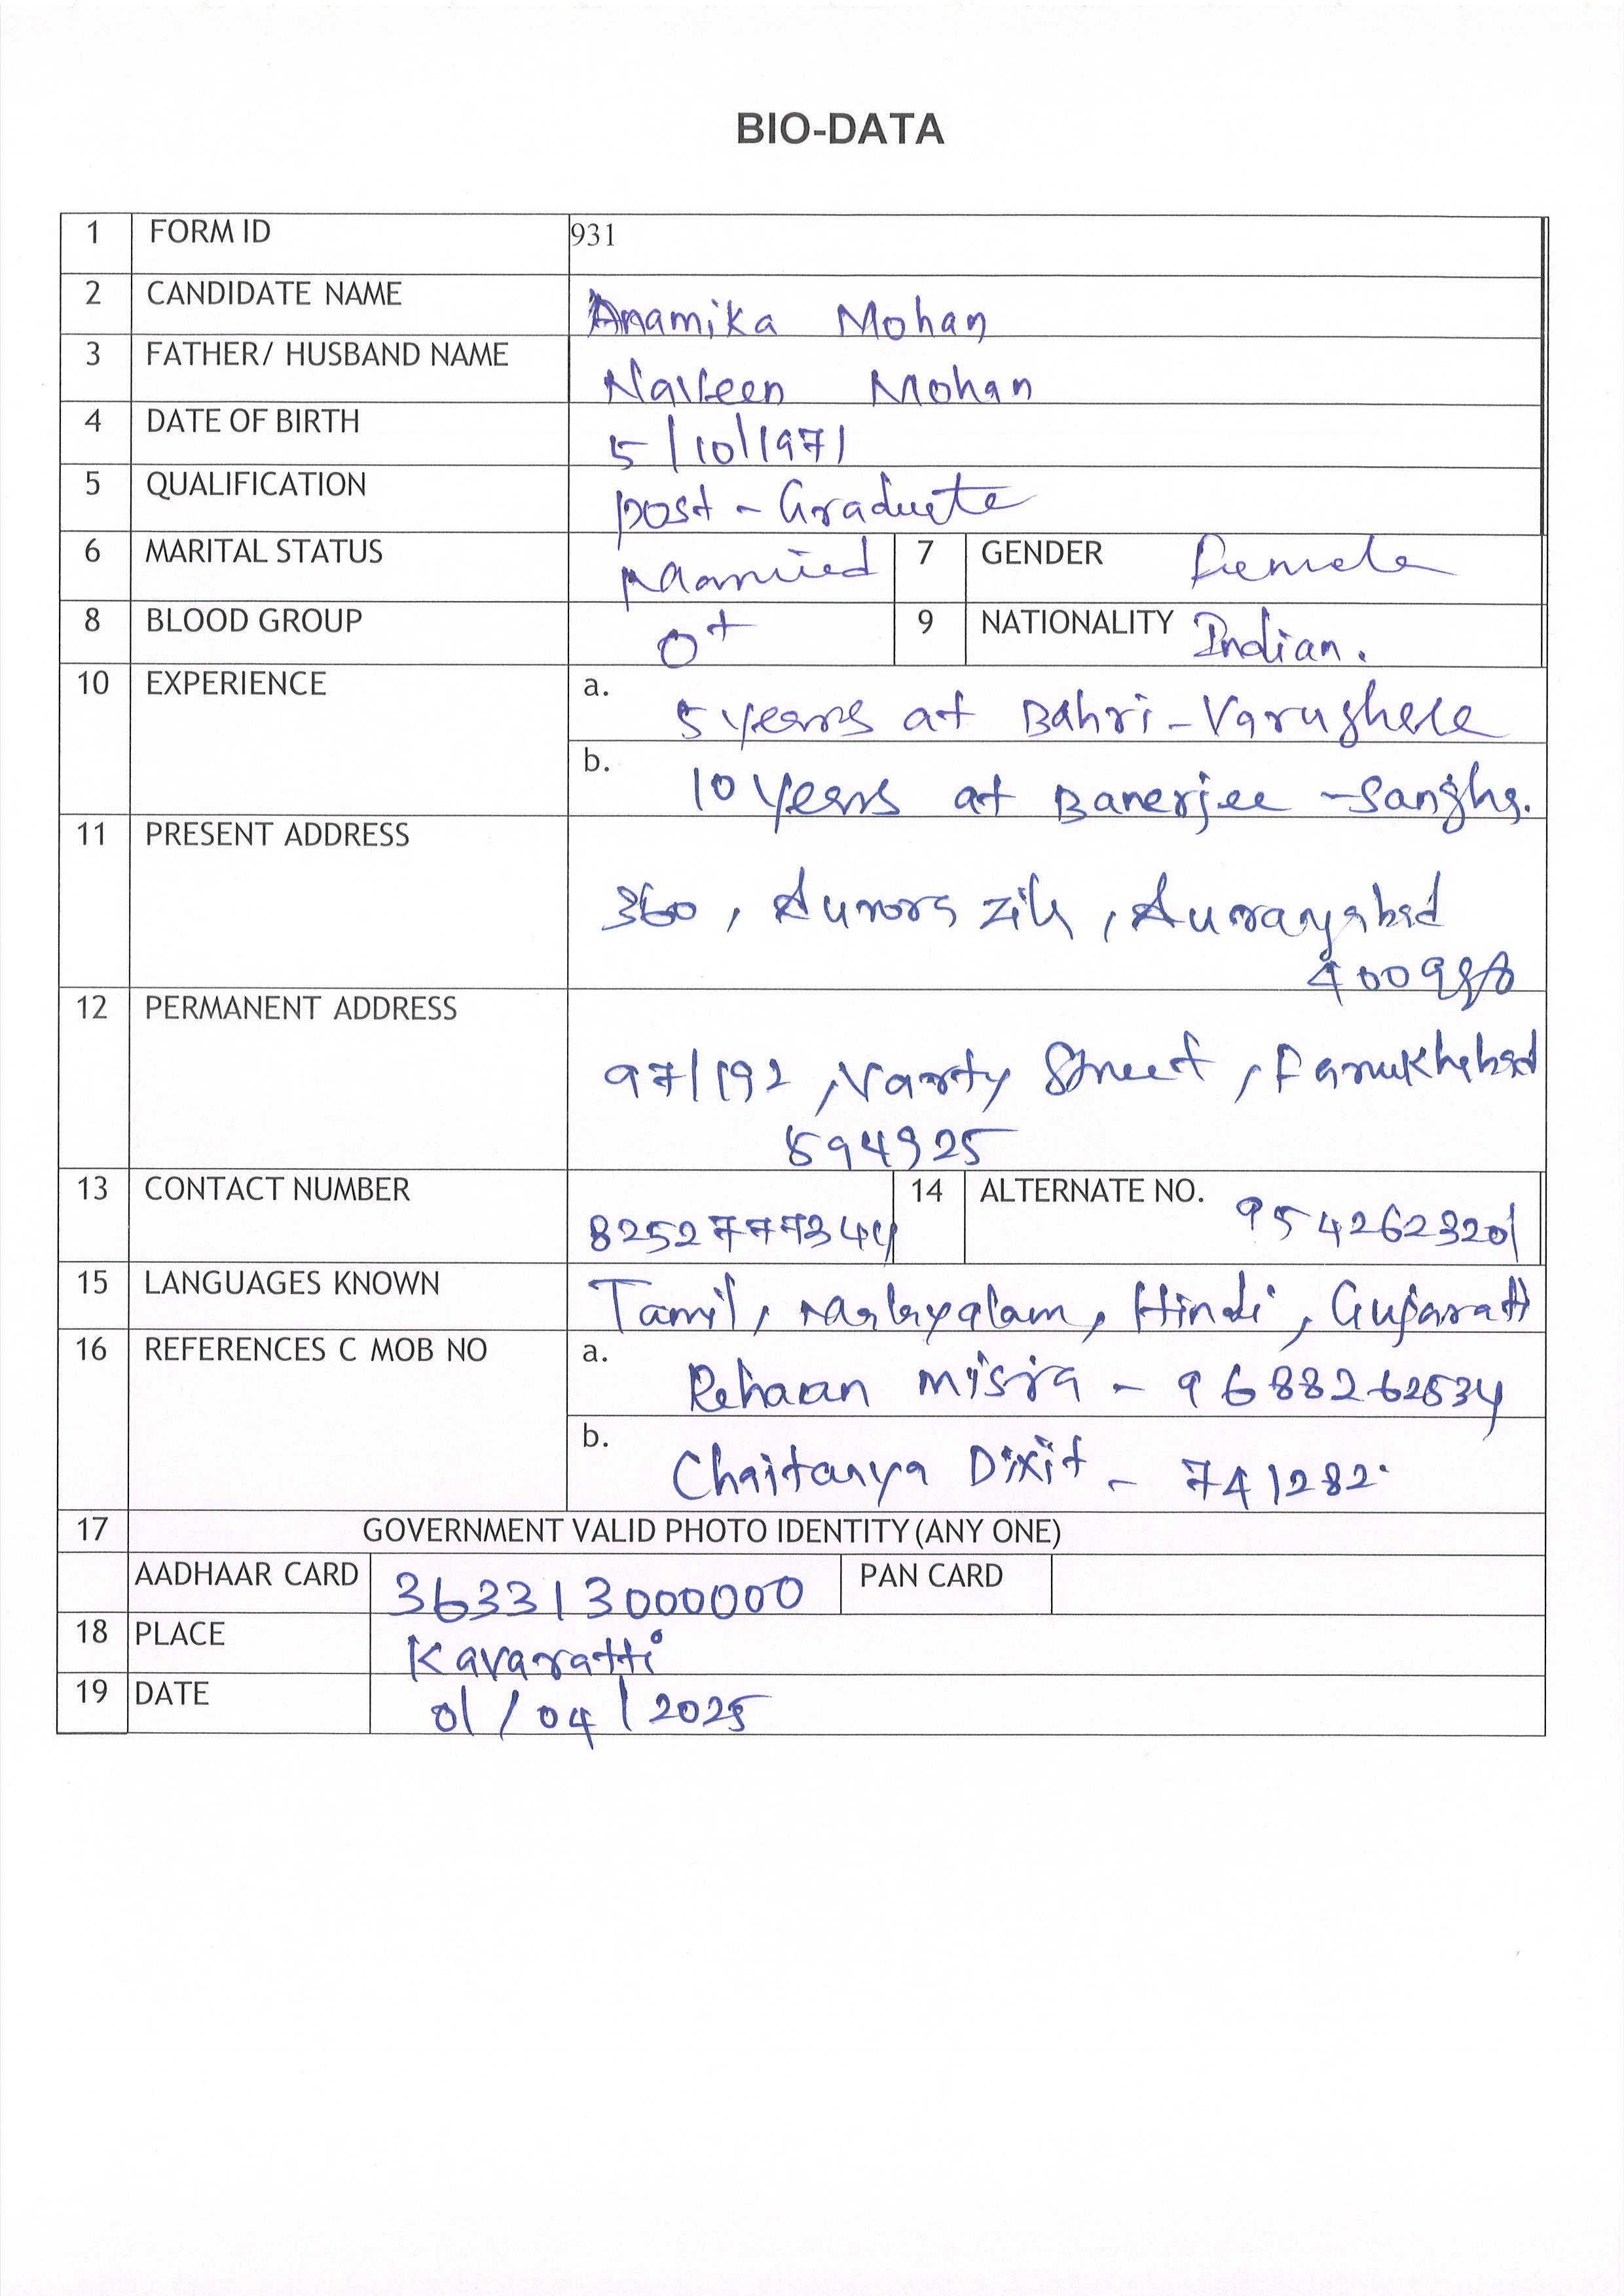 BIO-DATA
1 FORM ID 931
2 CANDIDATE NAME Anamika Mohan
3 FATHER/ HUSBAND NAME Naveen Mohan
4 DATE OF BIRTH 5/10/1971
5 QUALIFICATION post - Graduate
6 MARITAL STATUS Married 7 GENDER Female
8 BLOOD GROUP O+ 9 NATIONALITY Indian.
10 EXPERIENCE a. 5 years at Bahri-Varughese
b. 10 years at Banerjee - Sangha.
11 PRESENT ADDRESS
360, Aurora Zila, Aurangabad
12 PERMANENT ADDRESS
97/192, Varty Street, Farrukhabad
594925
13 CONTACT NUMBER 82527777344 14 ALTERNATE NO. 9542623201
15 LANGUAGES KNOWN Tamil, Malayalam, Hindi, Gujarati
16 REFERENCES C MOB NO a. Rehaan Misra - 9688262534
b. Chaitanya Dixit - 741282.
17 GOVERNMENT VALID PHOTO IDENTITY (ANY ONE)
AADHAAR CARD 363313000000 PAN CARD
18 PLACE Kavaratti
19 DATE 01/04/2025